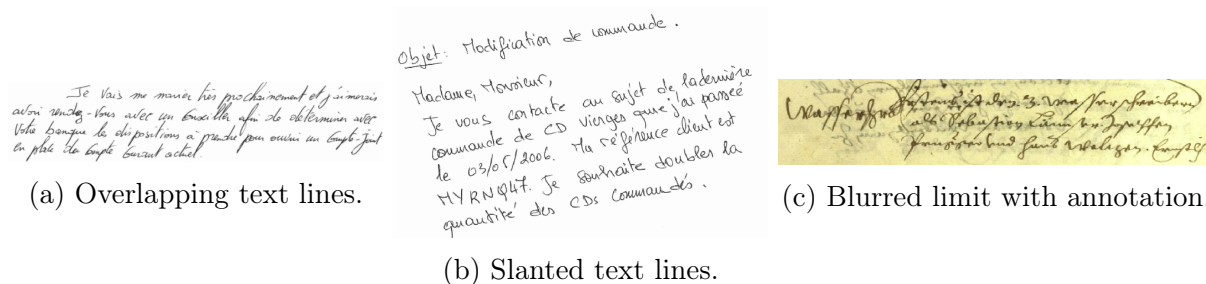 Je vais me marier très prochainement et j'aimerais
avoir rendez-vous avec un conseiller afin de déterminer avec
votre banque les dispositions à prendre pour ouvrir un compte-joint
en place du compte courant actuel.
(a) Overlapping text lines.
Objet: Modification de commande.
Madame, Monsieur,
Je vous contacte au sujet de la dernière
commande de CD vierges que j'ai passée
le 03/05/2006. Ma référence client est
MYRNQ47. Je souhaite doubler la
quantité des CDs commandés.
(b) Slanted text lines.
den 3.
als Sebastian
und hanns
(c) Blurred limit with annotation